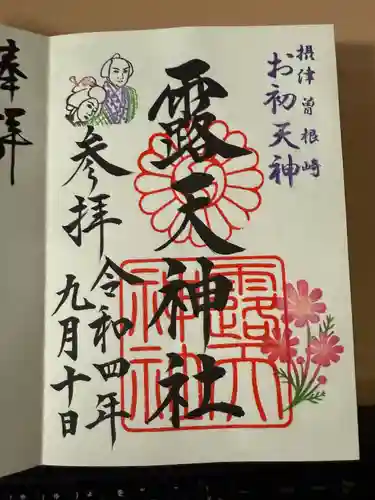 摂津曽根崎
お初天神
露天神社
参拝
令和四年
九月十日
露天
神社
奉拝